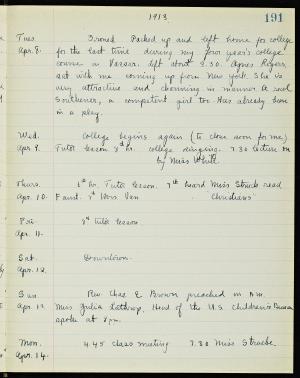 1913
191
Tues. Ironed Packed up and left home for college
Apr. 8. for the last time during my four year's college
course in Vassar. left about 3.30. Agnes Rogers
sat with me coming up from New York. She is
very attractive and charming in manner. A real
Southerner, a competent girl too. Has already been
in a play.
Wed. College begins again (to close soon for me)
Apr. 9. Tutor lesson 8th hr. college singing. 7.30 lecture on
by Miss White
Thurs. 1st hr. Tutor lesson. 7th heard Miss Struck read
Apr. 10. Faust. 8th Miss Van "Christians"
Fri. 8th tutor lesson.
Apr. 11.
Sat. Downtown.
Apr. 12.
Sun. Rev. Chas E. Brown preached in A.M.
Apr. 13. Miss Julia Lathrop, Head of the U.S. Children's Bureau
spoke at 8 P.M.
Mon. 4.45 class meeting 7.30 Miss Strucke.
Apr. 14.